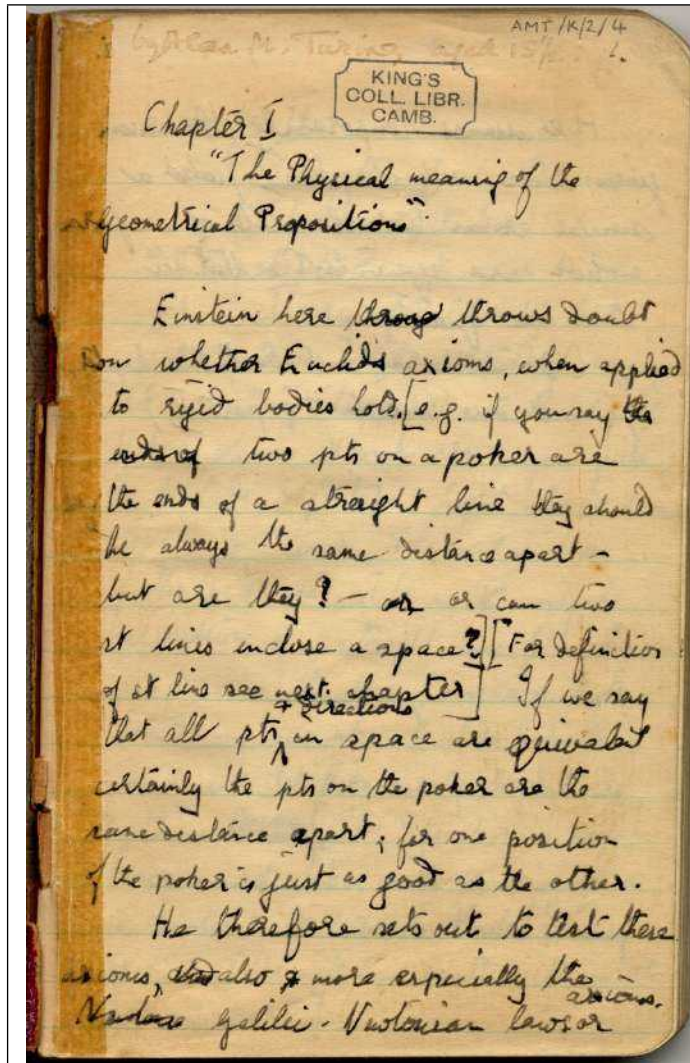 AMT/K/2/4
by Alan M. Turing, aged 15½. 1.
KING'S
COLL. LIBR.
CAMB.
Chapter I
"The Physical meaning of the
Geometrical Propositions"
Einstein here throws doubt
on whether Euclid's axioms, when applied
to rigid bodies hold. [e.g. if you say the
ends of two pts on a poker are
the ends of a straight line they should
be always the same distance apart –
but are they? – or or can two
st lines enclose a space?] [For definition
of st line see next chapter] If we say
+ directions
that all pts in space are equivalent
certainly the pts on the poker are the
same distance apart; for one position
of the poker is just as good as the other.
He therefore sets out to test these
axioms, also & more especially the
axioms.
Galilei-Newtonian laws or